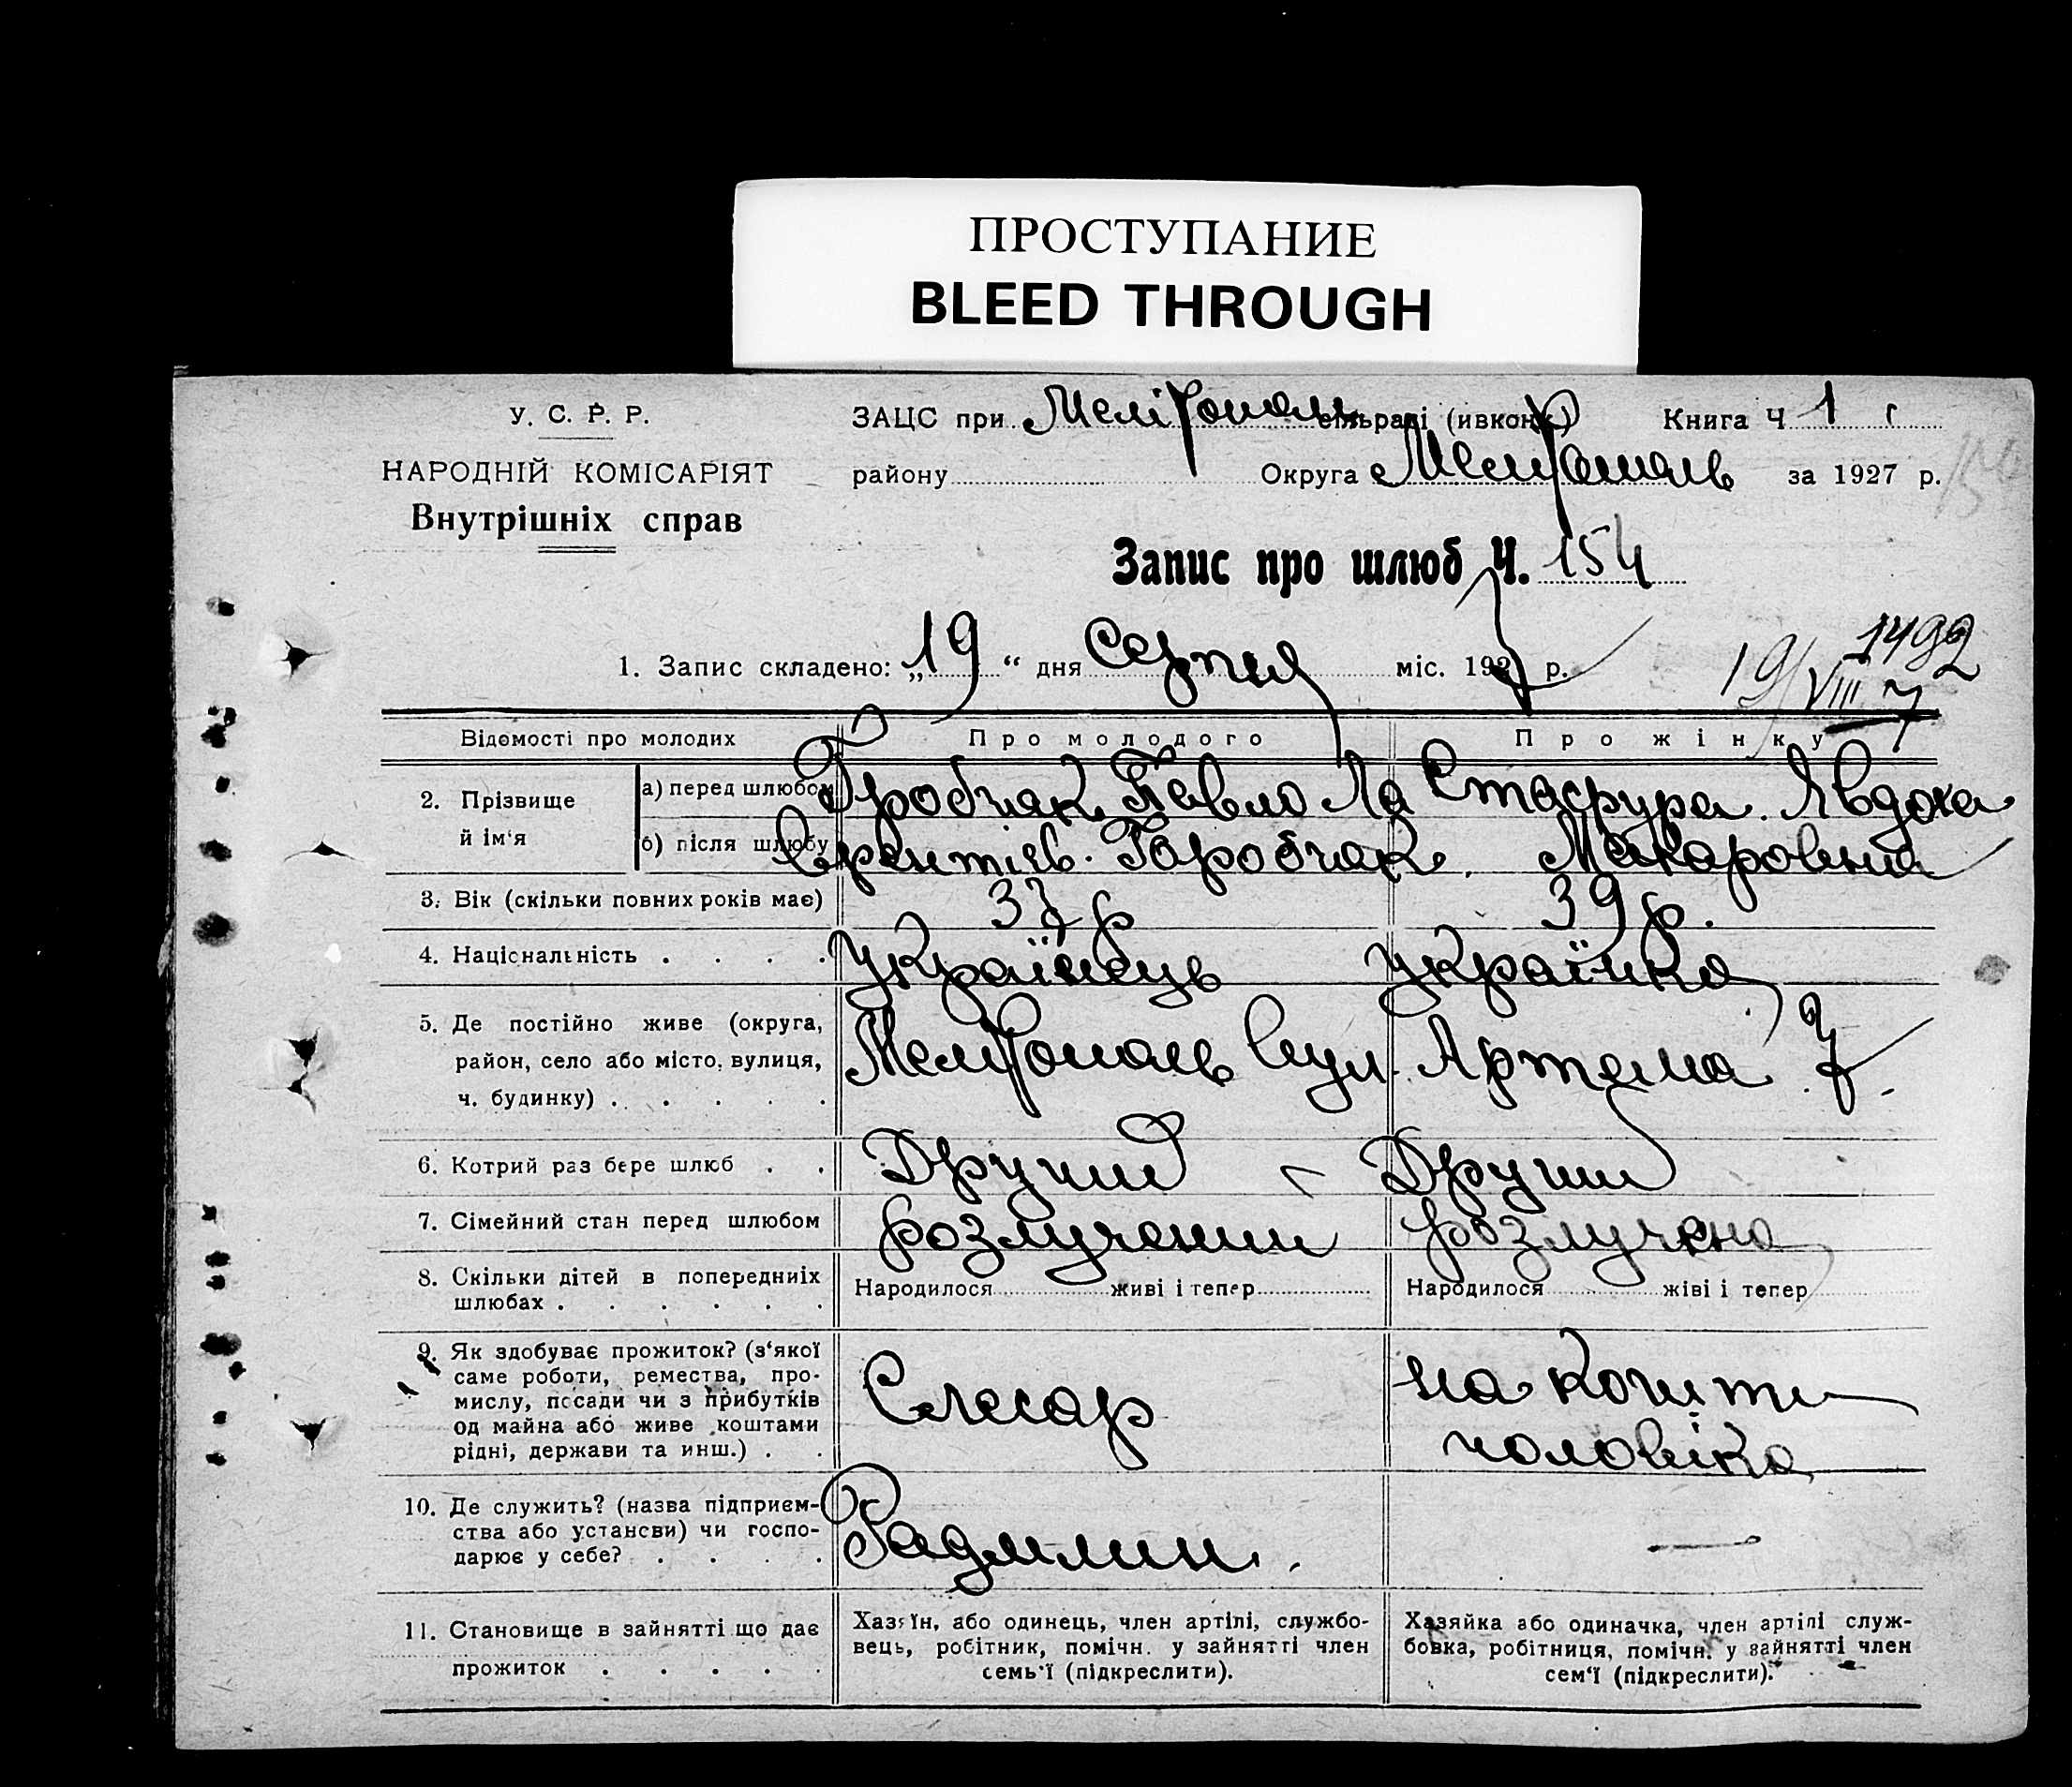 ПРОСТУПАНИЕ
BLEED THROUGH
У. С. Р. Р.
НАРОДНІЙ КОМІСАРІЯТ
Внутрішніх справ
ЗАЦС при Мелітополь сільраді (ивконк) Книга Ч 1
району Округа Мелітополь за 1927 р.
Запис про шлюб Ч. 154
1. Запис складено: „19“ дня Серпня міс. 1927 р.
1492
19/VIII 7
Відомості про молодих
Про молодого
Про жінку
2. Прізвище й ім‘я
а) перед шлюбом
б) після шлюбу
Павло Ла
Явдоха
врентієв. Горобчак.
Макаровна
3. Вік (скільки повних років має)
37 р
39 р.
4. Національність . . . .
Українець
Українка
5. Де постійно живе (округа,
район, село або місто, вулиця,
ч. будинку) . . . . .
Мелітополь вул. Артема 7.
6. Котрий раз бере шлюб . .
Другий
Другий
7. Сімейний стан перед шлюбом
розлучений
розлучена
8. Скільки дітей в попередниіх
шлюбах . . . . . .
Народилося живі і тепер
Народилося жіві і тепер
9. Як здобуває прожиток? (з‘якої
саме роботи, ремества, про-
мислу, посади чи з прибутків
од майна або живе коштами
рідні, держави та инш.) . .
Слесар
на кошти
чоловіка
10. Де служить? (назва підприєм-
ства або установи) чи госпо-
дарює у себе? . . . .
—
11. Становище в зайнятті що дає
прожиток . . . . .
Хазяїн, або одинець, член артілі, службо-
вець, робітник, помічн. у зайнятті член
семь‘ї (підкреслити).
Хазяйка або одиначка, член артілі служ-
бовка, робітниця, помічн. у зайнятті член
сем‘ї (підкреслити).